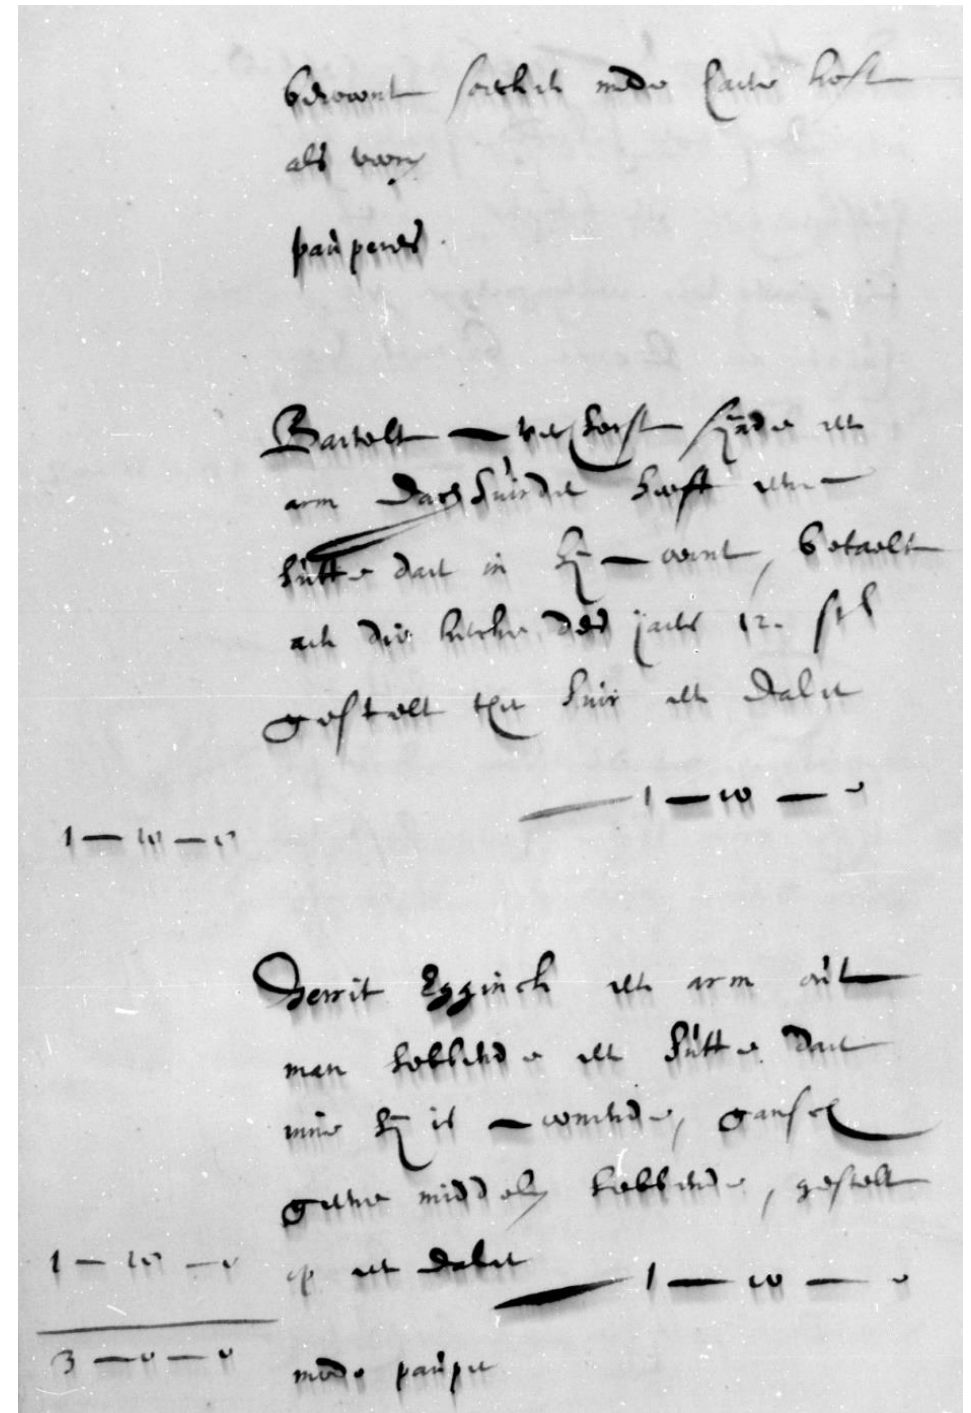 bewoont mede Caete heft
als voer
pauperes.
Bartelt verhorst sijnde een
arm Dachhuirder heeft eene
hutte daer in hij woent, betaelt
aen die kercke des jaers 12. st
gestelt ter huir een Daler
1 — 10 — 0
1 — 10 — 0
Gerrit Egginck een arm out
man hebbende een hutte daer
inne hij is woenende, gansch
geene middelen hebbende, gestelt
1 — 10 — 0
op een Daler 1 — 10 — 0
3 — 0 — 0
mede pauper